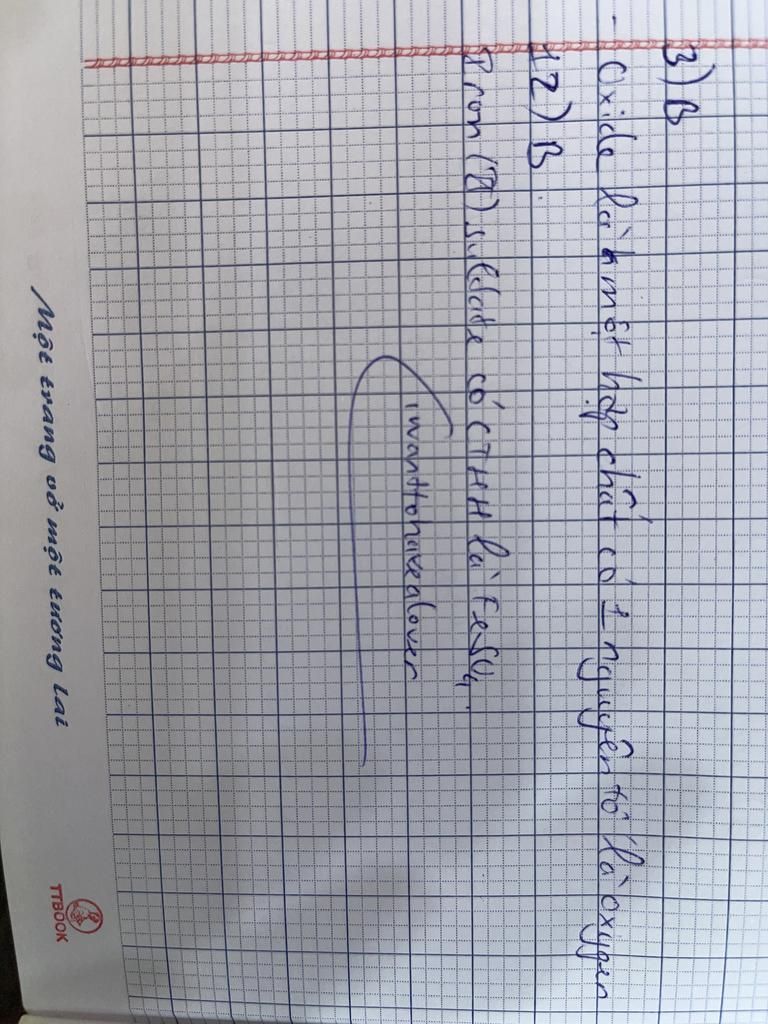 3) B
- Oxide là một hợp chất có 1 nguyên tố là oxygen
12) B
Iron (II) sulfate có CTHH là FeSO4.
iwanttohavealover
Một trang vở một tương lai
TTBOOK